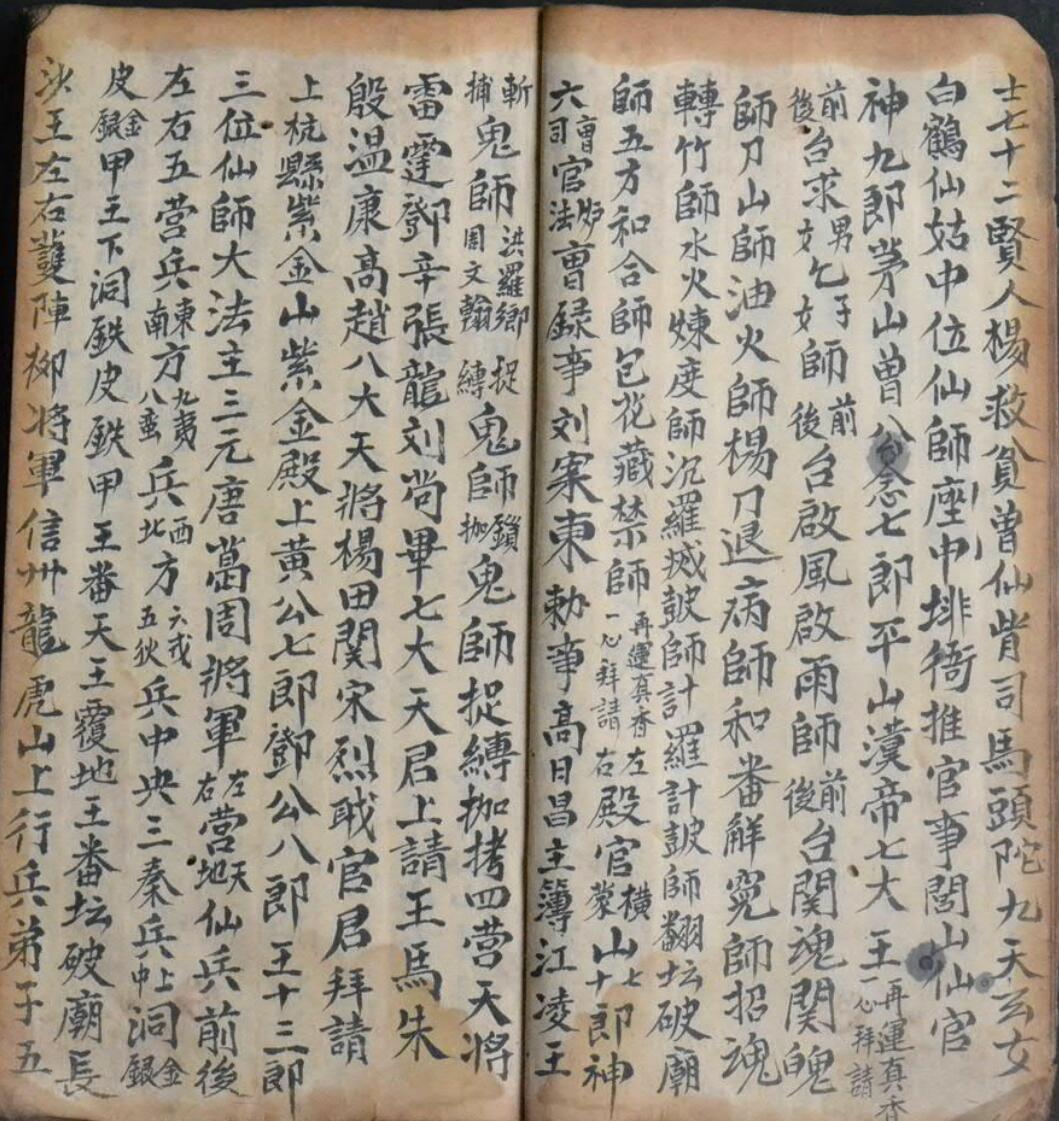 士七十二賢人楊救貧曾仙皆司馬頭陀九天玄女
白鶴仙姑中位仙師座中排衙推官事閭山仙官
神九郎茅山曾八念七郎平山漢帝七大王再運真香一心拜請
前後台求男女乞子女師前後台啟風啟雨師前後台関魂関魄
師刀山師油火師楊刀退病師和番解冤師招魂
轉竹師水火煉度師沉羅師計羅計師翻坛破廟
師五方和合師包花藏禁師再運真香一心拜請左右殿官橫蒙山七十郎神
六曹司官法曹録事刘案東勅事高日昌主簿江凌王
斬捕鬼師洪羅鄉周文翰捉縛鬼師鎖枷鬼師捉縛枷拷四营天將
雷霆鄧辛張龍刘尚畢七大天君上請王馬朱
殷温康高趙八大天將楊田関宋烈戢官君拜請
上杭縣紫金山紫金殿上黄公七郎鄧公八郎王十三郎
三位仙師大法主三元唐葛周將軍左右营天地仙兵前後
左右五营兵東南方九夷八蛮兵西北方六戎五狄兵中央三秦兵上中洞金銀
皮金銀甲王下洞鉄皮鉄甲王番天王覆地王番坛破廟長
沙王左右護陣柳將軍信州龍虎山上行兵弟子五